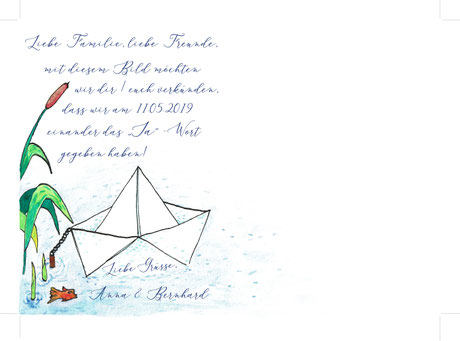 Liebe Familie, liebe Freunde,
mit diesem Bild möchten
wir dir / euch verkünden,
dass wir am 11.05.2019
einander das „Ja“-Wort
gegeben haben!
Liebe Grüsse,
Anna & Bernhard